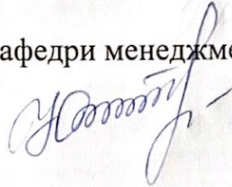 афедри менеджме